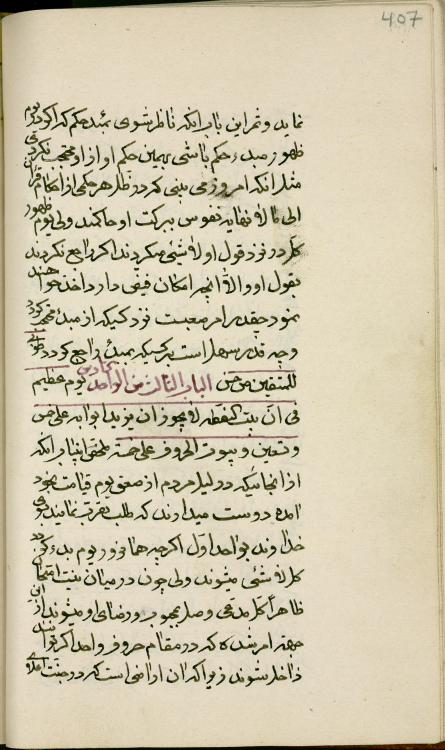 407
نماید و ثمر این باب انکه ناظر شوی بمبدء حکم که اکر در یوم
ظهور مبدء حکم باشی بهمین حکم او از او محتجب نکردی
مثل انکه امروز می بینی که در ظل هر حکمی از احکام قران
الی ما لا نهایه نفوس ببرکت او حاکمند ولی یوم ظهور
کل در نزد قول او لا شیئ میکردند اکر راجع نکردند
بقول او والا انچه امکان فیض دارد اخذ خواهند
نمود چقدر امر صعبست نزد کسیکه از مبدء محتجب کردد
و چه قدر سهل است بر کسیکه بمبدء راجع کردد
للمتقین من
الباب الثالث من الواحد
یوم عظیم
فی ان بیت النقطه لا یجوز ان یزید ابوابه علی خمس
و تسعین و بیوت الحروف علی خمسة ملخص این باب انکه
از انجائیکه در لیل مردم از معنی یوم قیامت بوجود
امده دوست میدارند که طلب تقرب نمایند بسوی
خداوند بواحد اول اکرچه همانروز یوم بدء کل
کل لا شیئ میشوند ولی چون در میان نیست امتحان
ظاهراً کل مدعی وصل محبوب و رضای او میشوند از این
جهة امر شده که در مقام حروف واحد اکر
داخل شوند زیرا که ان اراضی است که در جنت اعلای